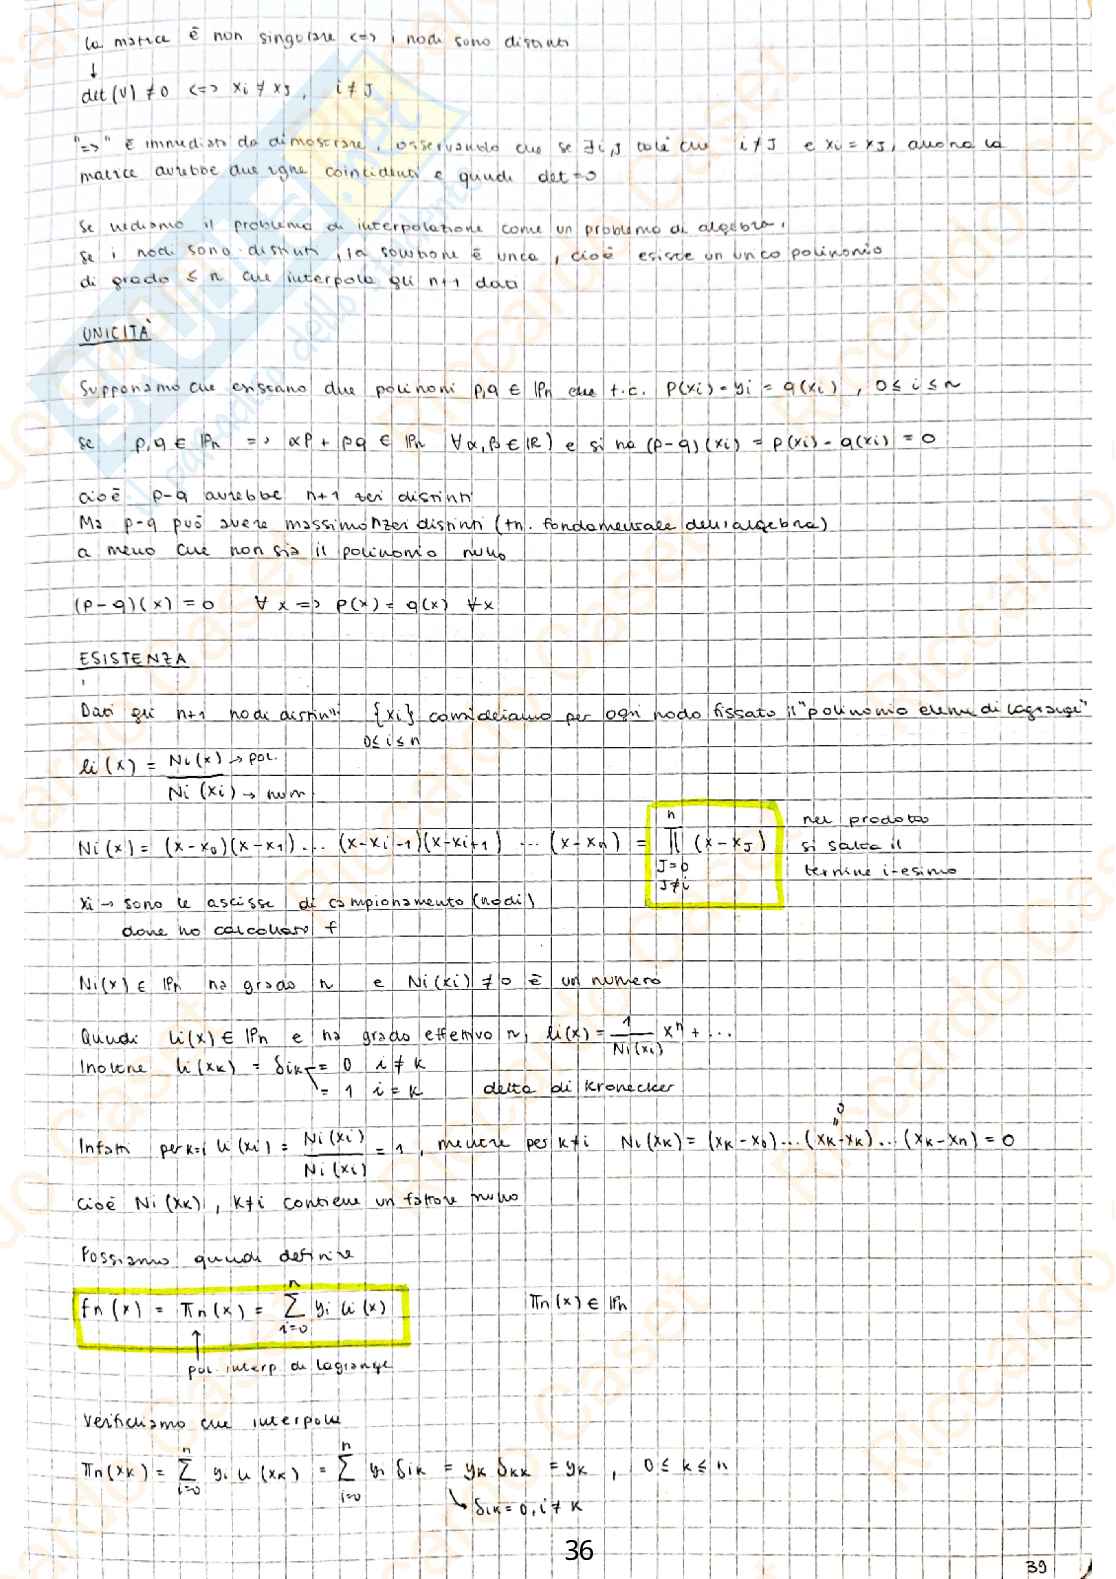 la matrice è non singolare <=> i nodi sono distinti
↓
det(V) ≠ 0 <=> xi ≠ xJ, i ≠ J
"=>" È immediato da dimostrare, osservando che se ∃ i,J tali che i ≠ J e xi = xJ, allora la
matrice avrebbe due righe coincidenti e quindi det = 0
Se vediamo il problema di interpolazione come un problema di algebra,
se i nodi sono distinti, la soluzione è unica, cioè esiste un unico polinomio
di grado ≤ n che interpola gli n+1 dati
UNICITÀ
Supponiamo che esistano due polinomi p,q ∈ IPn che t.c. p(xi) = yi = q(xi), 0 ≤ i ≤ n
se p,q ∈ IPn => αp + βq ∈ IPn ∀α,β ∈ IR) e si ha (p-q)(xi) = p(xi) - q(xi) = 0
cioè p-q avrebbe n+1 zeri distinti
Ma p-q può avere massimo n zeri distinti (tn. fondamentale dell'algebra)
a meno che non sia il polinomio nullo
(p-q)(x) = 0 ∀ x => p(x) = q(x) ∀x
ESISTENZA
Dati gli n+1 nodi distinti {xi} consideriamo per ogni nodo fissato il "polinomio elem. di Lagrange"
0 ≤ i ≤ n
li(x) = Ni(x) → pol.
Ni(xi) → num
Ni(x) = (x-x0)(x-x1)... (x-xi-1)(x-xi+1) ... (x-xn) = n ∏ J=0 J≠i (x-xJ)
nel prodotto
si salta il
termine i-esimo
xi → sono le ascisse di campionamento (nodi)
dove ho calcolato f
Ni(x) ∈ IPn ha grado n e Ni(xi) ≠ 0 è un numero
Quindi li(x) ∈ IPn e ha grado effettivo n, li(x) = 1/Ni(xi) x^n + ...
Inoltre li(xk) = δik = 0 i ≠ k
= 1 i = k delta di Kronecker
Infatti per k=i li(xi) = Ni(xi)/Ni(xi) = 1, mentre per k≠i Ni(xk) = (xk-x0)...(xk-xk)...(xk-xn) = 0
0
cioè Ni(xk), k≠i contiene un fattore nullo
Possiamo quindi definire
fn(x) = πn(x) = n ∑ i=0 yi li(x) πn(x) ∈ IPn
↑
pol. interp di Lagrange
Verifichiamo che interpola
πn(xk) = n ∑ i=0 yi li(xk) = n ∑ i=0 yi δik = yk δkk = yk, 0 ≤ k ≤ n
↳ δik = 0, i ≠ k
36
39